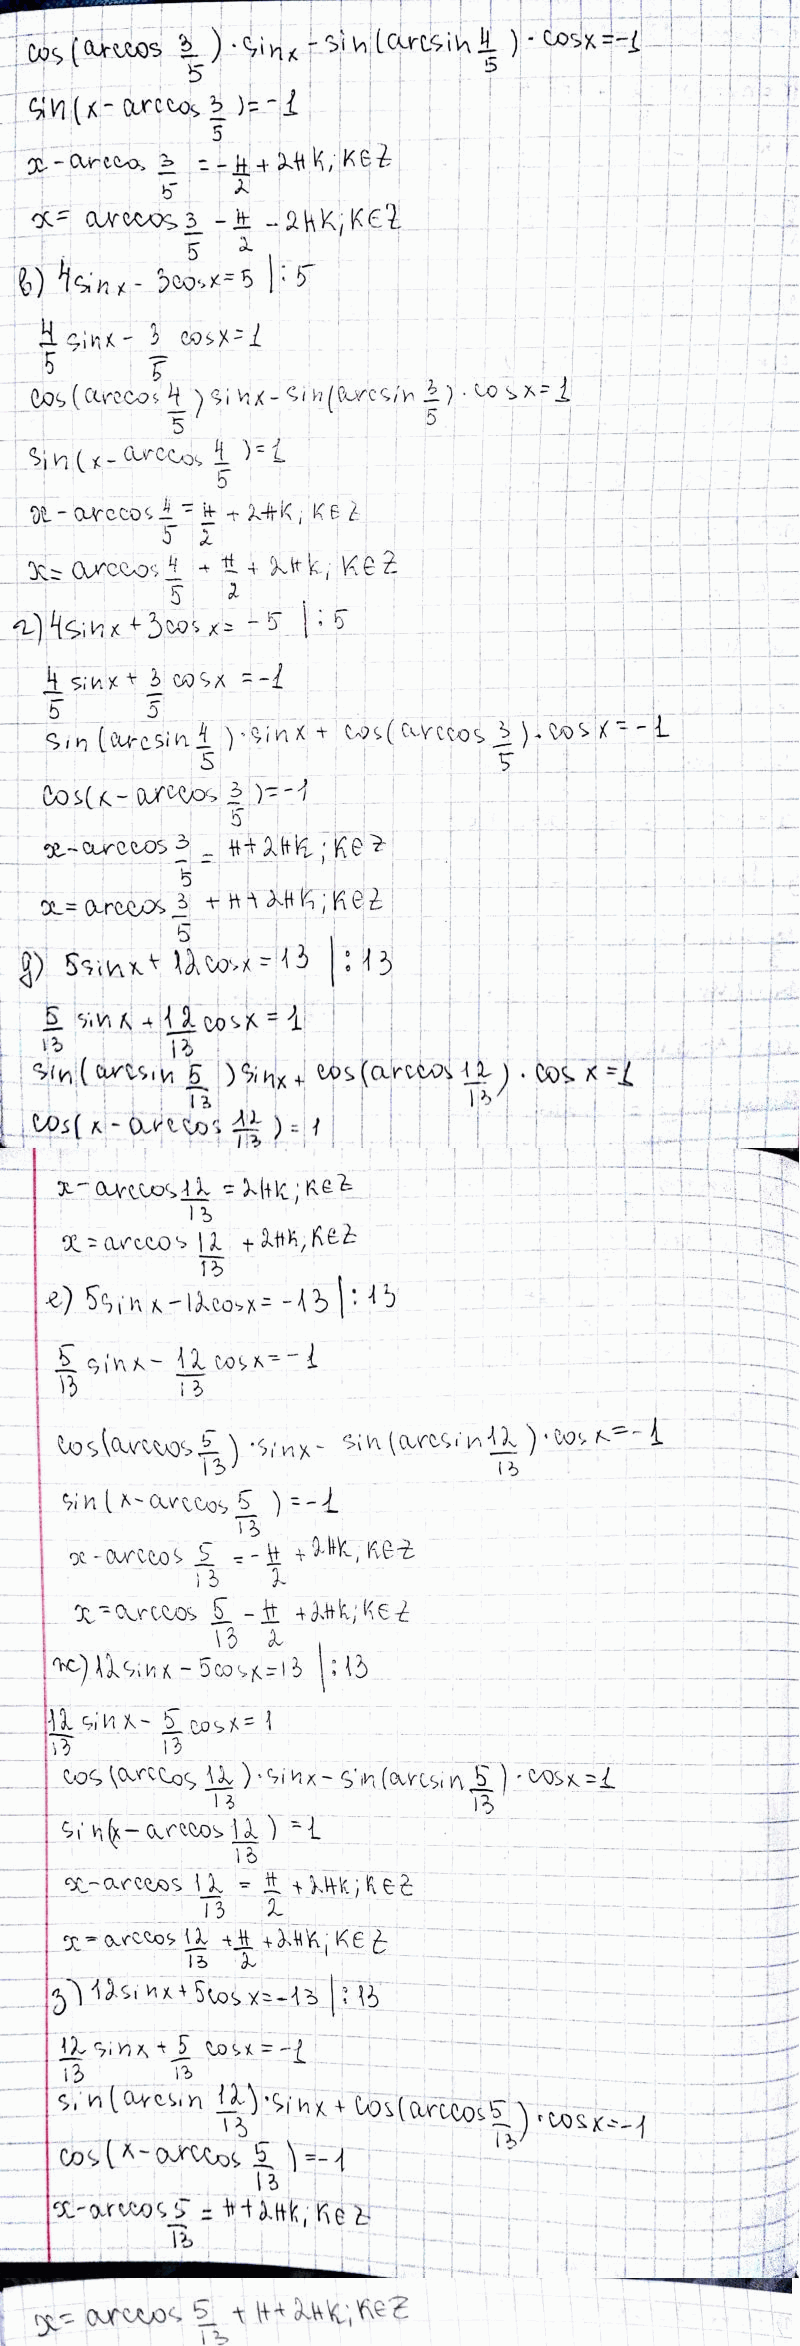 cos(arccos 3/5)·sinx - sin(arcsin 4/5)·cosx = -1
sin(x - arccos 3/5) = -1
x - arccos 3/5 = -π/2 + 2πk; k∈Z
x = arccos 3/5 - π/2 - 2πk; k∈Z
в) 4sinx - 3cosx = 5 |:5
4/5 sinx - 3/5 cosx = 1
cos(arccos 4/5) sinx - sin(arcsin 3/5)·cosx = 1
sin(x - arccos 4/5) = 1
x - arccos 4/5 = π/2 + 2πk; k∈Z
x = arccos 4/5 + π/2 + 2πk; k∈Z
г) 4sinx + 3cosx = -5 |:5
4/5 sinx + 3/5 cosx = -1
sin(arcsin 4/5)·sinx + cos(arccos 3/5)·cosx = -1
cos(x - arccos 3/5) = -1
x - arccos 3/5 = π + 2πk; k∈Z
x = arccos 3/5 + π + 2πk; k∈Z
д) 5sinx + 12cosx = 13 |:13
5/13 sinx + 12/13 cosx = 1
sin(arcsin 5/13) sinx + cos(arccos 12/13)·cosx = 1
cos(x - arccos 12/13) = 1
x - arccos 12/13 = 2πk; k∈Z
x = arccos 12/13 + 2πk, k∈Z
е) 5sinx - 12cosx = -13 |:13
5/13 sinx - 12/13 cosx = -1
cos(arccos 5/13)·sinx - sin(arcsin 12/13)·cosx = -1
sin(x - arccos 5/13) = -1
x - arccos 5/13 = -π/2 + 2πk; k∈Z
x = arccos 5/13 - π/2 + 2πk; k∈Z
ж) 12sinx - 5cosx = 13 |:13
12/13 sinx - 5/13 cosx = 1
cos(arccos 12/13)·sinx - sin(arcsin 5/13)·cosx = 1
sin(x - arccos 12/13) = 1
x - arccos 12/13 = π/2 + 2πk; k∈Z
x = arccos 12/13 + π/2 + 2πk; k∈Z
з) 12sinx + 5cosx = -13 |:13
12/13 sinx + 5/13 cosx = -1
sin(arcsin 12/13)·sinx + cos(arccos 5/13)·cosx = -1
cos(x - arccos 5/13) = -1
x - arccos 5/13 = π + 2πk; k∈Z
x = arccos 5/13 + π + 2πk; k∈Z